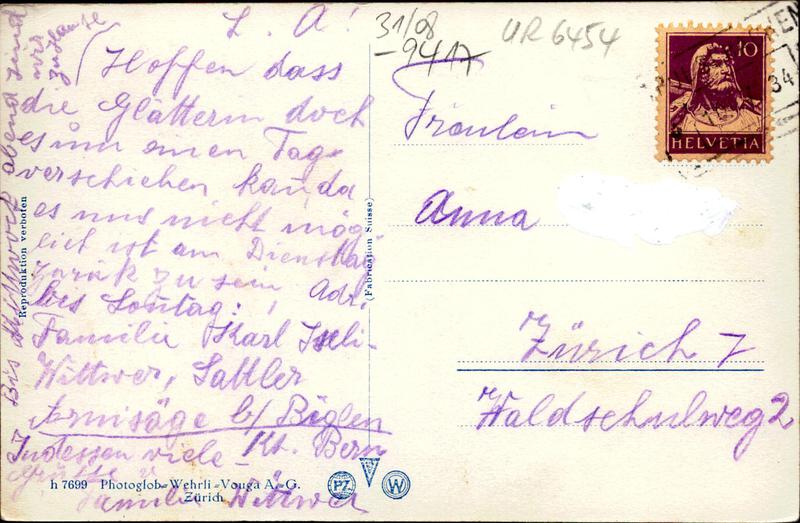 L. A!
Hoffen dass
die Glätterin doch
es um einen Tag
verschieben kan, da
es uns nicht mög-
lich ist am Dienstag
zurük zu sein, Adr.
bis Sontag:
Familie Karl Iseli-
Wittwer, Sattler
Arnisäge b/ Biglen
Kt. Bern
Indessen viele
Grüsse v.
Familie Wittwer
Bis Mittwoch abend sind
wir
zuhause
31/08
-9417
UR 6454
10
HELVETIA
34
Fräulein
Anna
Zürich 7
Waldschulweg 2
Reproduktion verboten
(Fabrication Suisse)
h 7699 Photoglob-Wehrli-Vouga A.-G.
Zürich
PZ
W